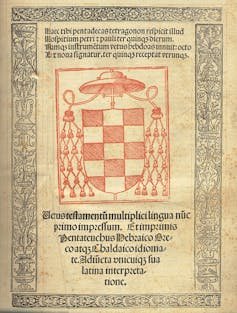 Haec tibi pentadecas tetragonon respicit illud
Hospitium petri: z pauli ter quinqz dierum.
Namqz instrumētum vetus hebdoas innuit: octo
Lex noua signatur. ter quinqz receptat vtrunqz.
Uetus testamentū multiplici lingua nūc
primo impressum. Et imprimis
Pentateuchus Hebraico Gre-
coatqz Chaldaico idioma-
te. Adiūcta vnicuiqz sua
latina interpreta-
tione.